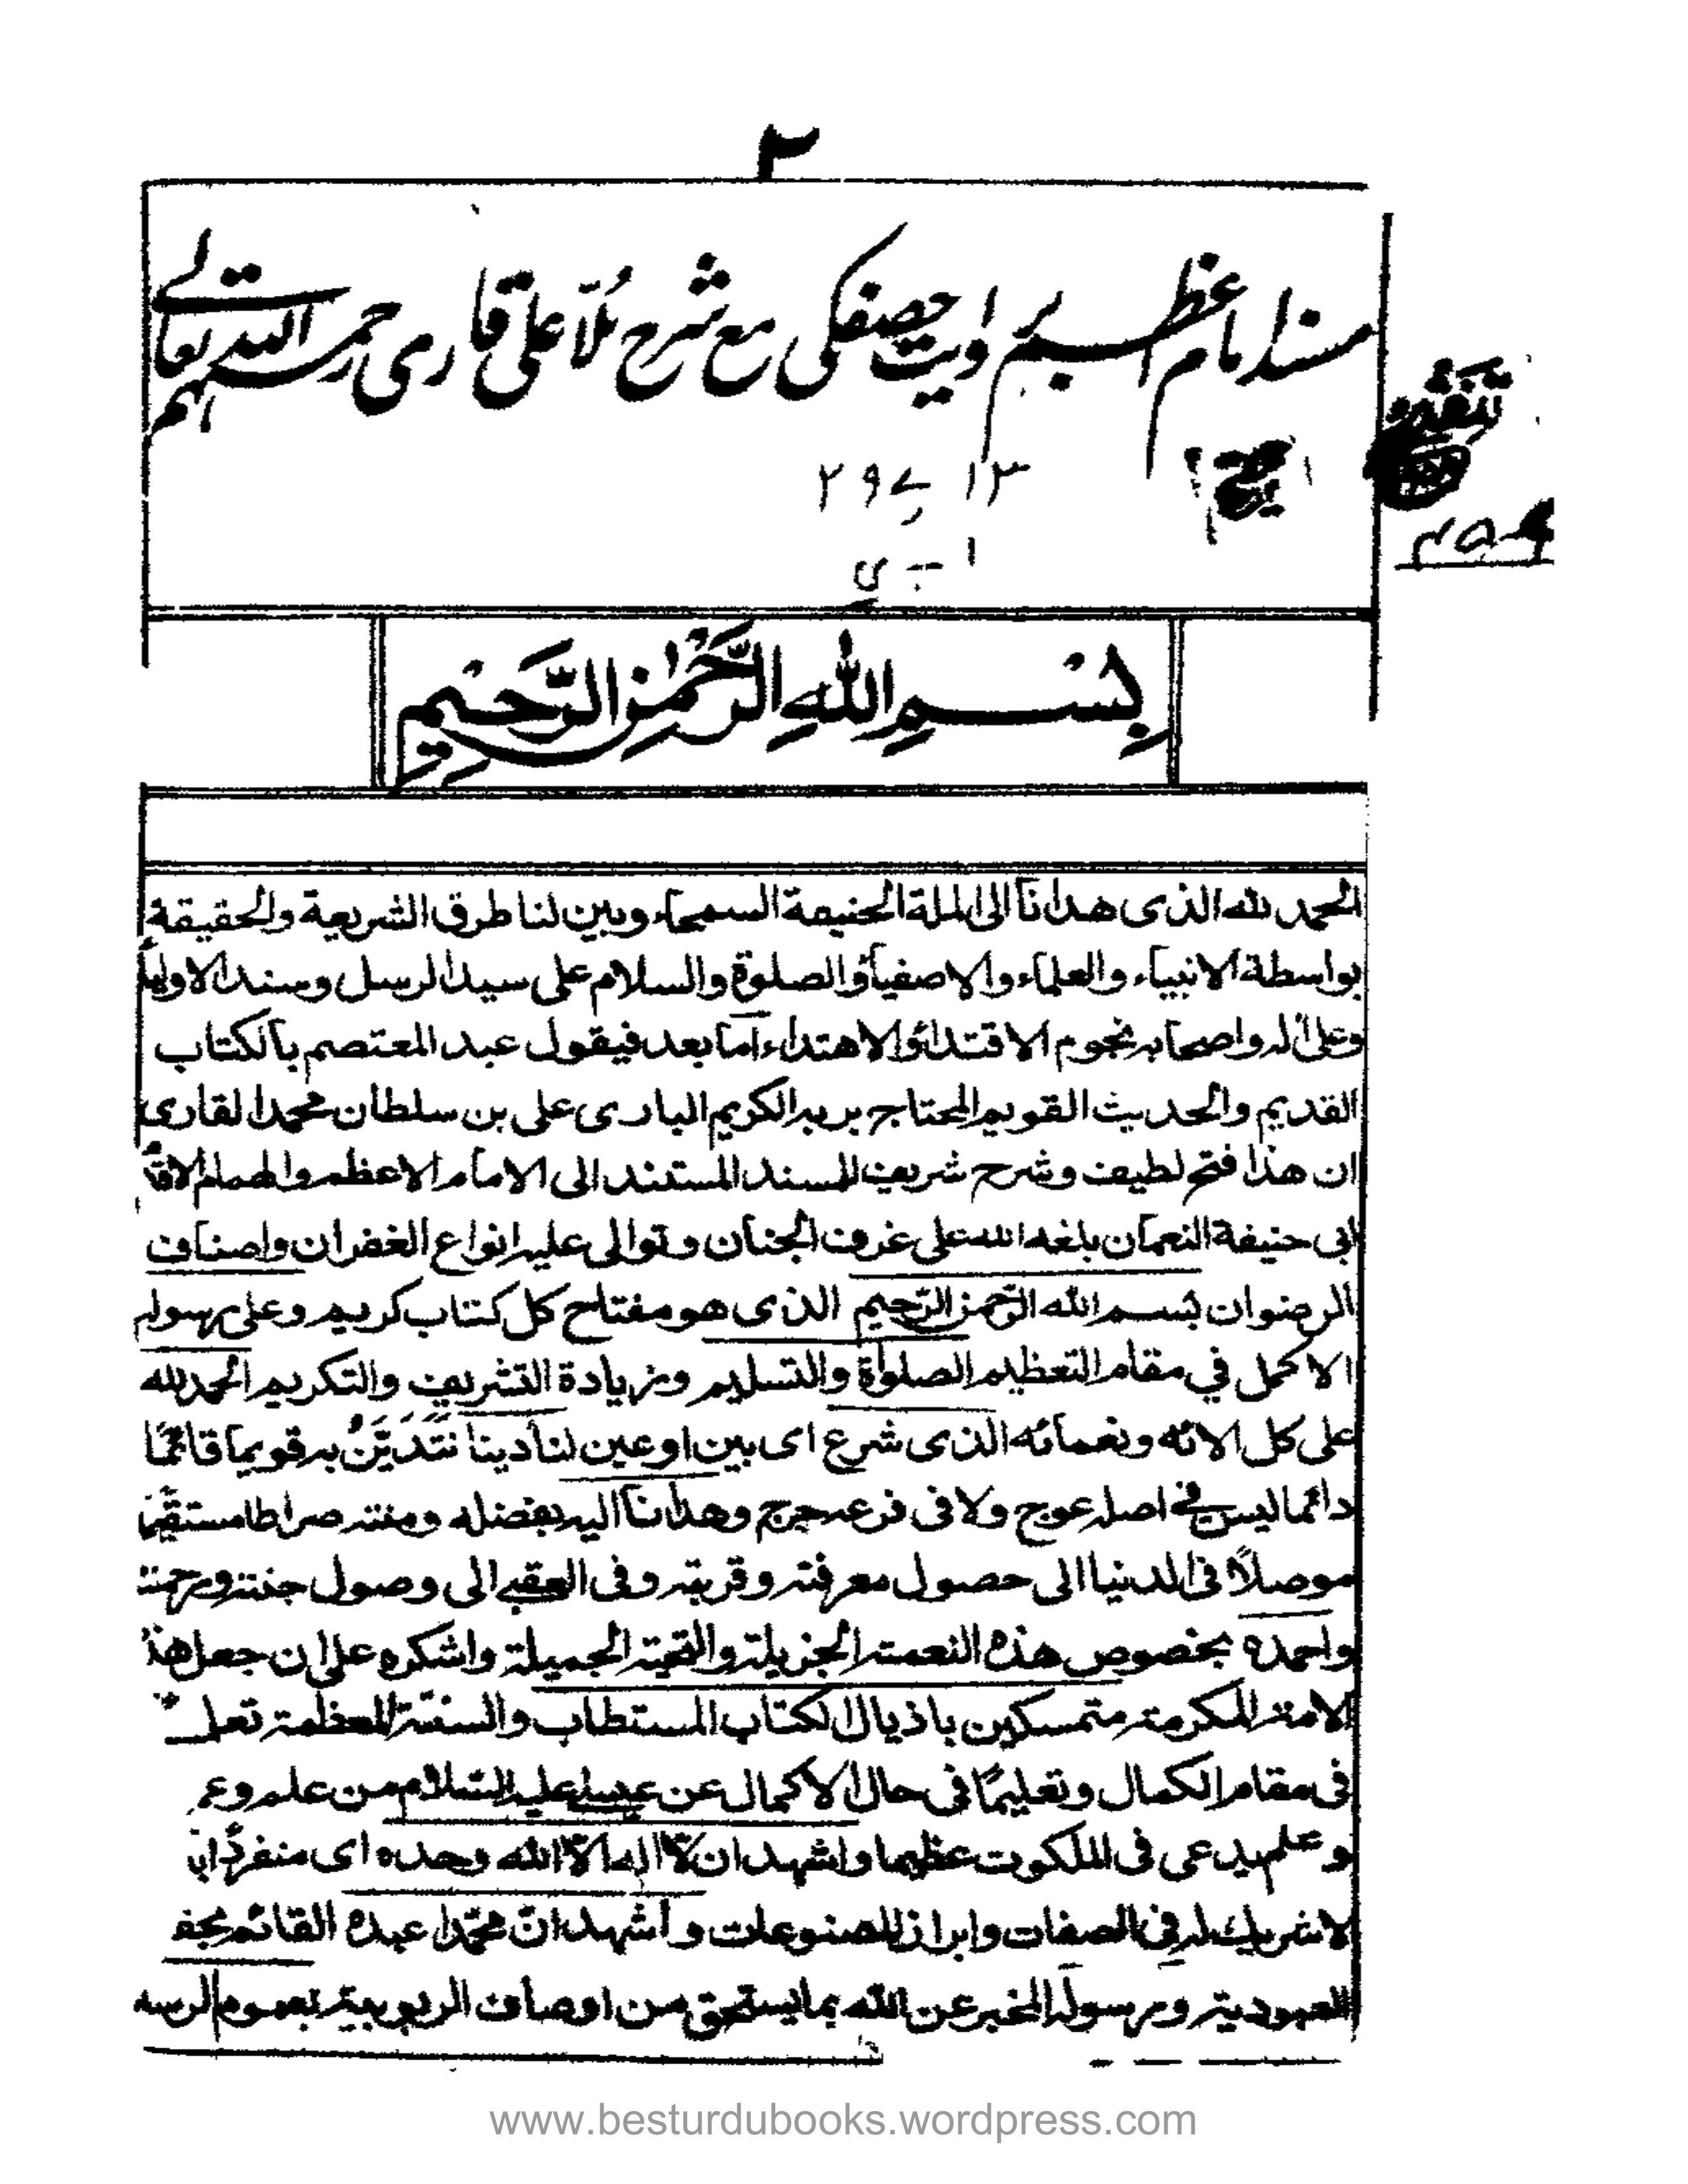 ٢
مسند امام اعظم بروايت حصفكي مع شرح مُلّا علي قاري رحمہم اللہ تعالے
بِسْمِ اللهِ الرَّحْمٰنِ الرَّحِيْمِ
الحمد لله الذى هدانا الى الملة الحنيفة السمحاء وبين لنا طرق الشريعة والحقيقة
بواسطة الانبياء والعلماء والاصفياء والصلوة والسلام على سيد الرسل وسند الاولياء
وعلى اله واصحابه نجوم الاقتداء والاهتداء اما بعد فيقول عبد المعتصم بالكتاب
القديم والحديث القويم المحتاج بربه الكريم البارى على بن سلطان محمد القارى
ان هذا فتح لطيف وشرح شريف للمسند المستند الى الامام الاعظم والهمام الاقدم
ابى حنيفة النعمان بلغه الله على غرف الجنان وتوالى عليه انواع الغفران واصناف
الرضوان بسم الله الرحمن الرحيم الذى هو مفتاح كل كتاب كريم وعلى رسوله
الاكمل في مقام التعظيم الصلواة والتسليم وزيادة التشريف والتكريم الحمد لله
على كل الائه ونعمائه الذى شرع اى بين او عين لنا دينا نتديّن به قويما قائما
دائما ليس فى اصله عوج ولا فى فرعه حرج وهدانا اليه بفضله ومنته صراطا مستقيما
موصلاً فى الدنيا الى حصول معرفته وقربته وفى العقبى الى وصول جنته ورحمته
واحمده بخصوص هذه النعمة الجزيلة والتحية الجميلة واشكره على ان جعل هذه
الامة المكرمة متمسكين باذيال الكتاب المستطاب والسنة المعظمة
فى مقام الكمال وتعليمًا فى حال الاكمال عن عيسى عليه السلام من علم وعمل
وعلم يدعى فى الملكوت عظيما واشهد ان لا اله الا الله وحده اى منفردًا
لا شريك له فى الصفات وابراز المصنوعات وأشهد ان محمدا عبده القائم
العبودية ورسوله المخبر عن الله بما يستحق من اوصاف الربوبية
www.besturdubooks.wordpress.com